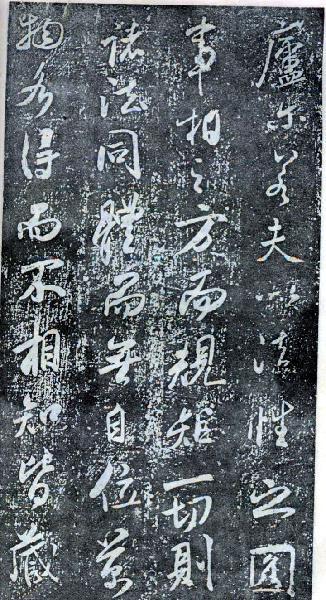 廬若夫以性之圓
事相之方而規矩一切則
諸法同體而無自位萬
物各得而不相知皆藏